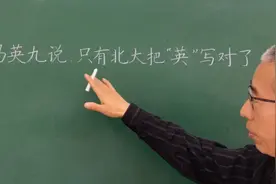 英九说，只有北大把“英”写对了